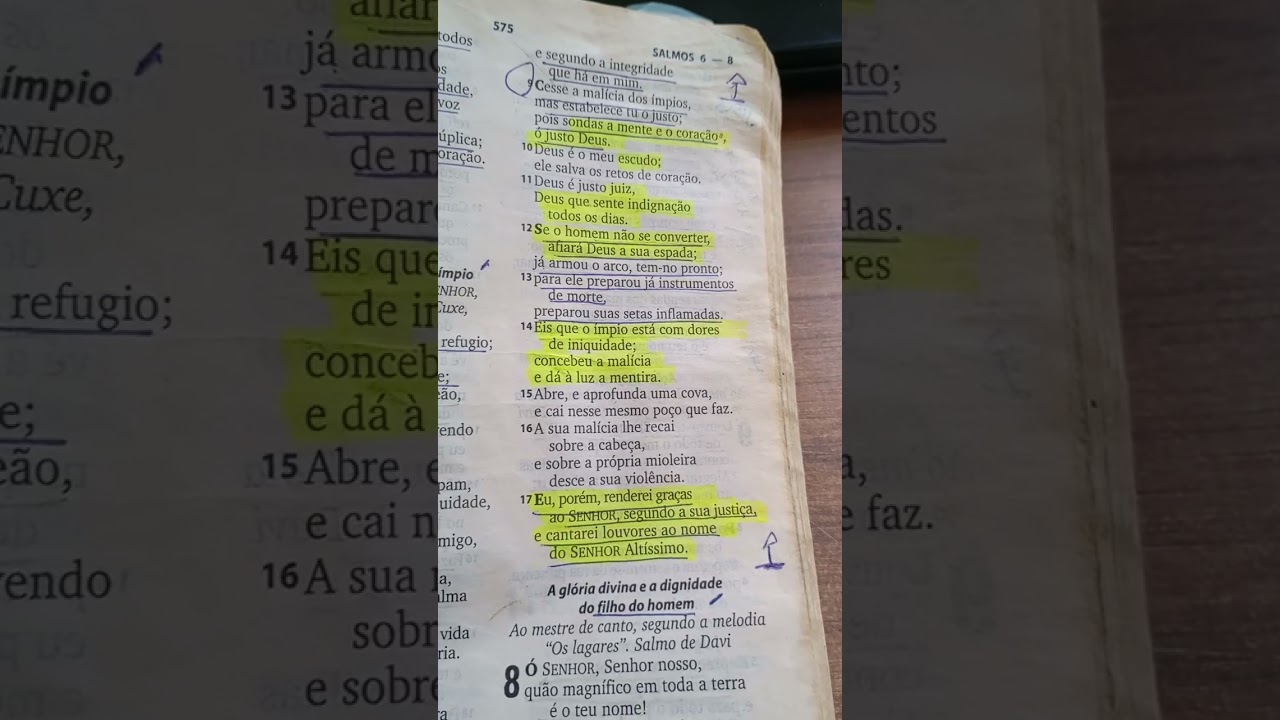 575
SALMOS 6 — 8
e segundo a integridade
que há em mim.
9 Cesse a malícia dos ímpios,
mas estabelece tu o justo;
pois sondas a mente e o coraçãoª,
ó justo Deus.
10 Deus é o meu escudo;
ele salva os retos de coração.
11 Deus é justo juiz,
Deus que sente indignação
todos os dias.
12 Se o homem não se converter,
afiará Deus a sua espada;
já armou o arco, tem-no pronto;
13 para ele preparou já instrumentos
de morte,
preparou suas setas inflamadas.
14 Eis que o ímpio está com dores
de iniquidade;
concebeu a malícia
e dá à luz a mentira.
15 Abre, e aprofunda uma cova,
e cai nesse mesmo poço que faz.
16 A sua malícia lhe recai
sobre a cabeça,
e sobre a própria mioleira
desce a sua violência.
17 Eu, porém, renderei graças
ao SENHOR, segundo a sua justiça,
e cantarei louvores ao nome
do SENHOR Altíssimo.
A glória divina e a dignidade
do filho do homem
Ao mestre de canto, segundo a melodia
“Os lagares”. Salmo de Davi
8 Ó SENHOR, Senhor nosso,
quão magnífico em toda a terra
é o teu nome!